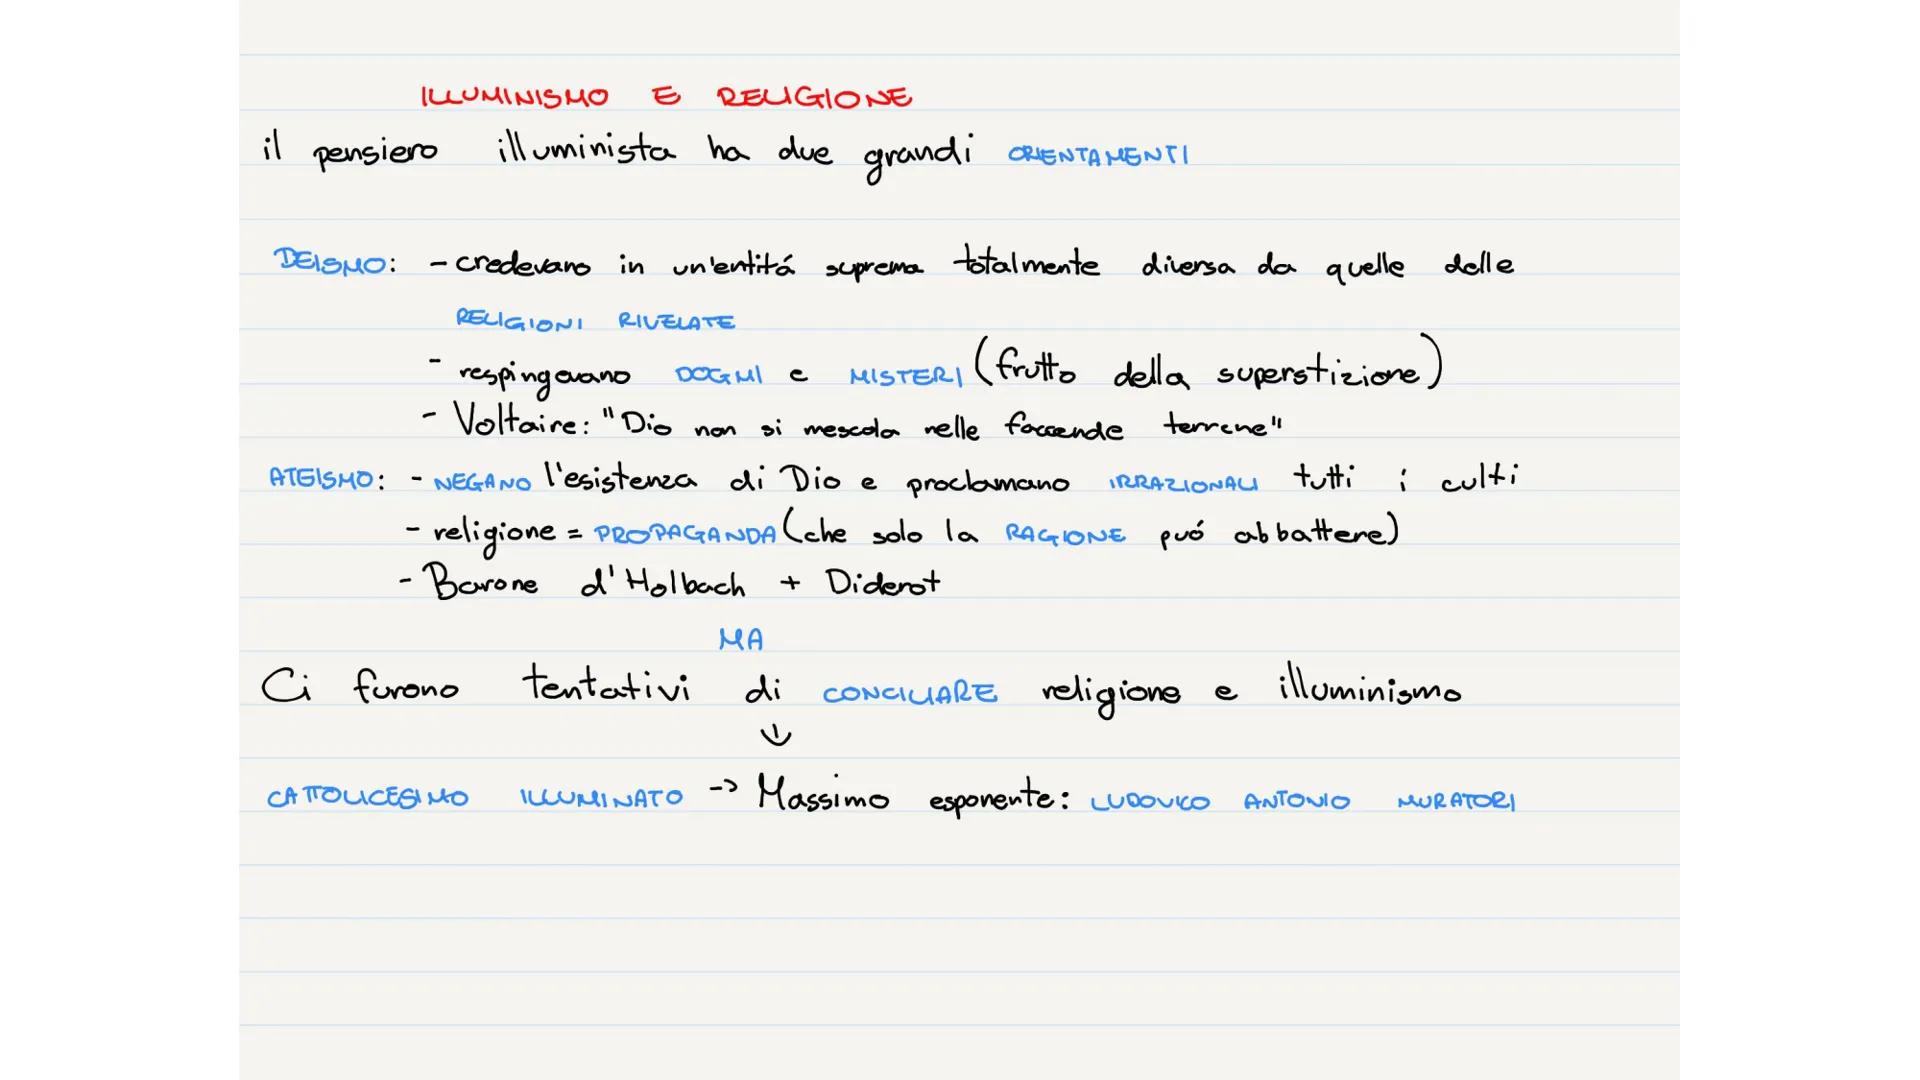 ILLUMINISMO E RELIGIONE
il pensiero illuminista ha due grandi ORIENTAMENTI
DEISMO: - credevano in un'entitá suprema totalmente diversa da quelle delle
RELIGIONI RIVELATE
- respingevano DOGMI e MISTERI (frutto della superstizione)
- Voltaire: "Dio non si mescola nelle faccende terrene"
ATEISMO: - NEGANO l'esistenza di Dio e proclamano IRRAZIONALI tutti i culti
- religione = PROPAGANDA (che solo la RAGIONE puó abbattere)
- Barone d'Holbach + Diderot
MA
Ci furono tentativi di CONCILIARE religione e illuminismo
↓
CATTOLICESIMO ILLUMINATO -> Massimo esponente: LUDOVICO ANTONIO MURATORI